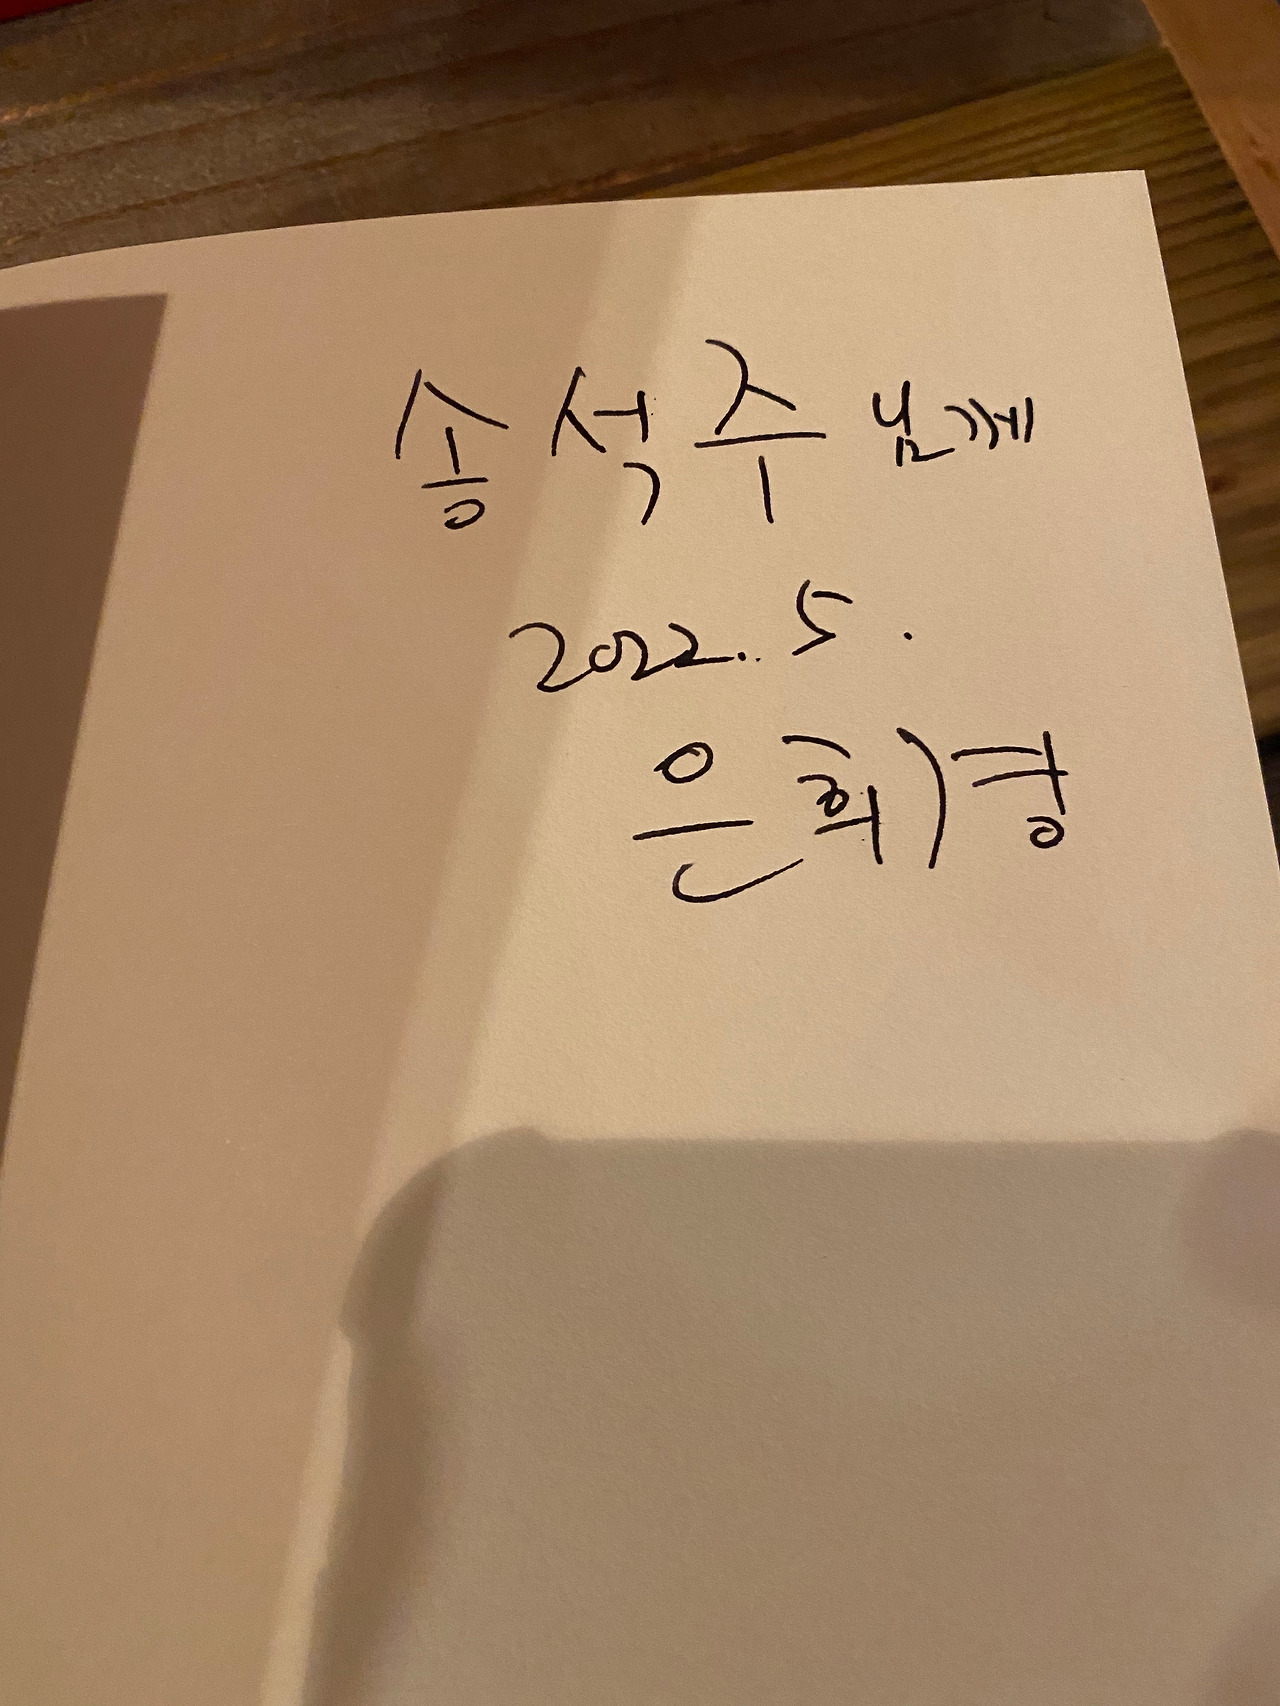 송석주 님께
2022. 5.
은희경